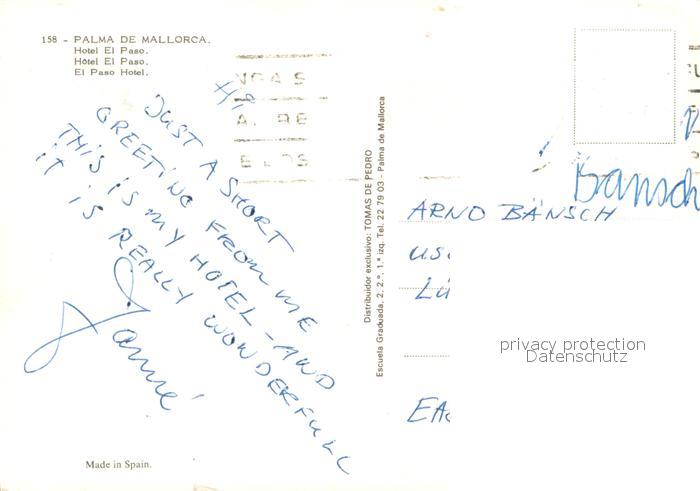 158 - PALMA DE MALLORCA.
Hotel El Paso.
Hôtel El Paso.
El Paso Hotel.
Hi
JUST A SHORT
GREETING FROM ME
THIS IS MY HOTEL - AND
IT IS REALLY WONDERFULL
Made in Spain.
Distribuidor exclusivo: TOMAS DE PEDRO
Escuela Graduada, 2, 2.°, 1.ª izq. Tel. 22 79 03 - Palma de Mallorca
Bänsch
ARNO BÄNSCH
privacy protection
Datenschutz